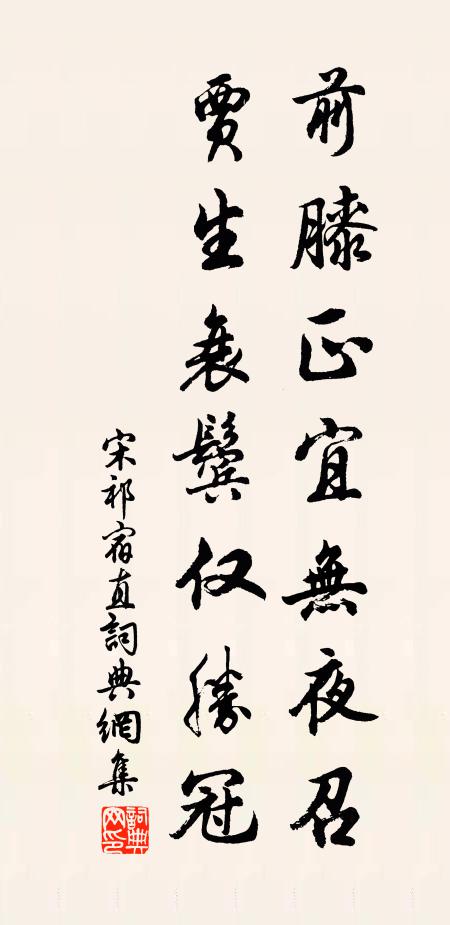 前膝正宜無夜召
賈生衰鬢仅勝冠
宋祁宿直詞典網集
詞典
网印